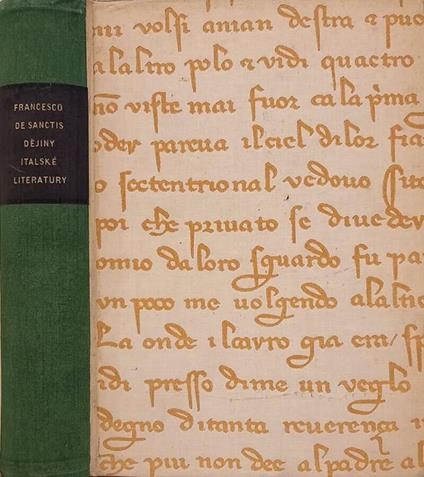 FRANCESCO
DE SANCTIS
DĚJINY
ITALSKÉ
LITERATURY
mi volsi aman destra & puo
alaltro polo & vidi quactro
nō viste mai fuor cala p̄ma
oder pareua ilciel dilor fia
o sectentrional vedouo Sito
poi che priuato se diueder
omio daloro sguardo fu pa
vn poco me uolgendo alalt
La onde ilcarro gia em/ sp
idi presso dime un veglo
degno ditanta reuerença
che piu non dee alpadre al